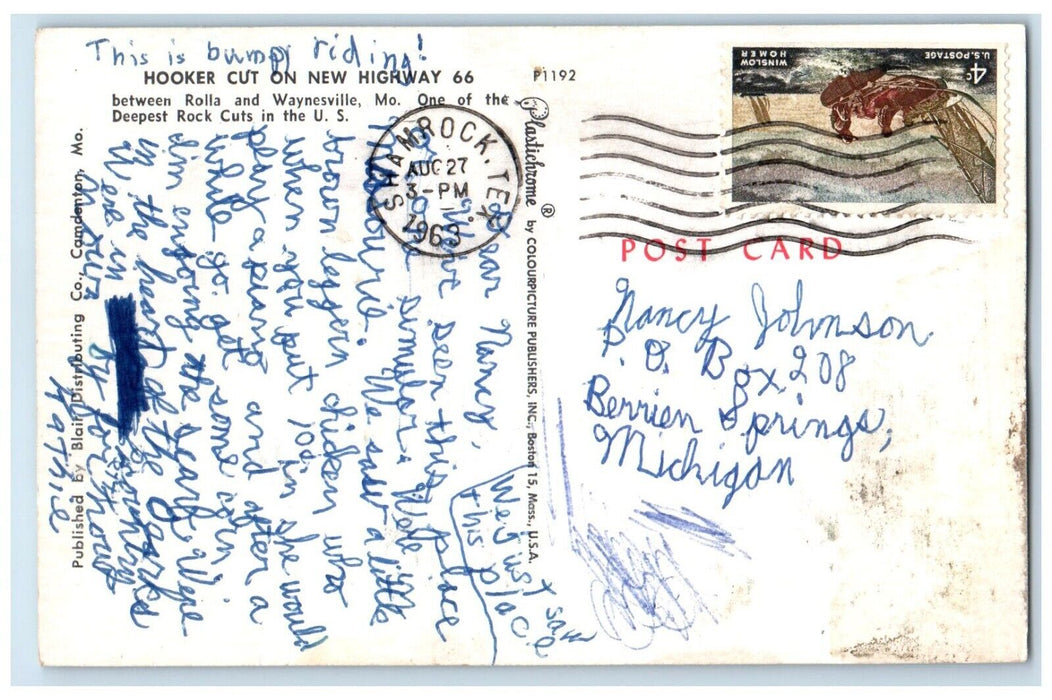 This is bumpy riding!
HOOKER CUT ON NEW HIGHWAY 66
P1192
between Rolla and Waynesville, Mo. One of the
Deepest Rock Cuts in the U. S.
Published by Blair Distributing Co., Camdenton, Mo.
Plastichrome ® by COLOURPICTURE PUBLISHERS, INC., Boston 15, Mass., U.S.A.
SHAMROCK, TEX.
AUG 27
3-PM
1963
WINSLOW
HOMER
U.S. POSTAGE
4c
POST CARD
Dear Nancy,
seen this place
Missouri. We saw a little
brown leggern chicken who
when you put 10¢ in she would
play a piano and after a
while go get some
enjoying the
in the heart of the Ozarks
were in
by for
Kathie
We just saw
this place
Nancy Johnson
P. O. Box 208
Berrien Springs,
Michigan